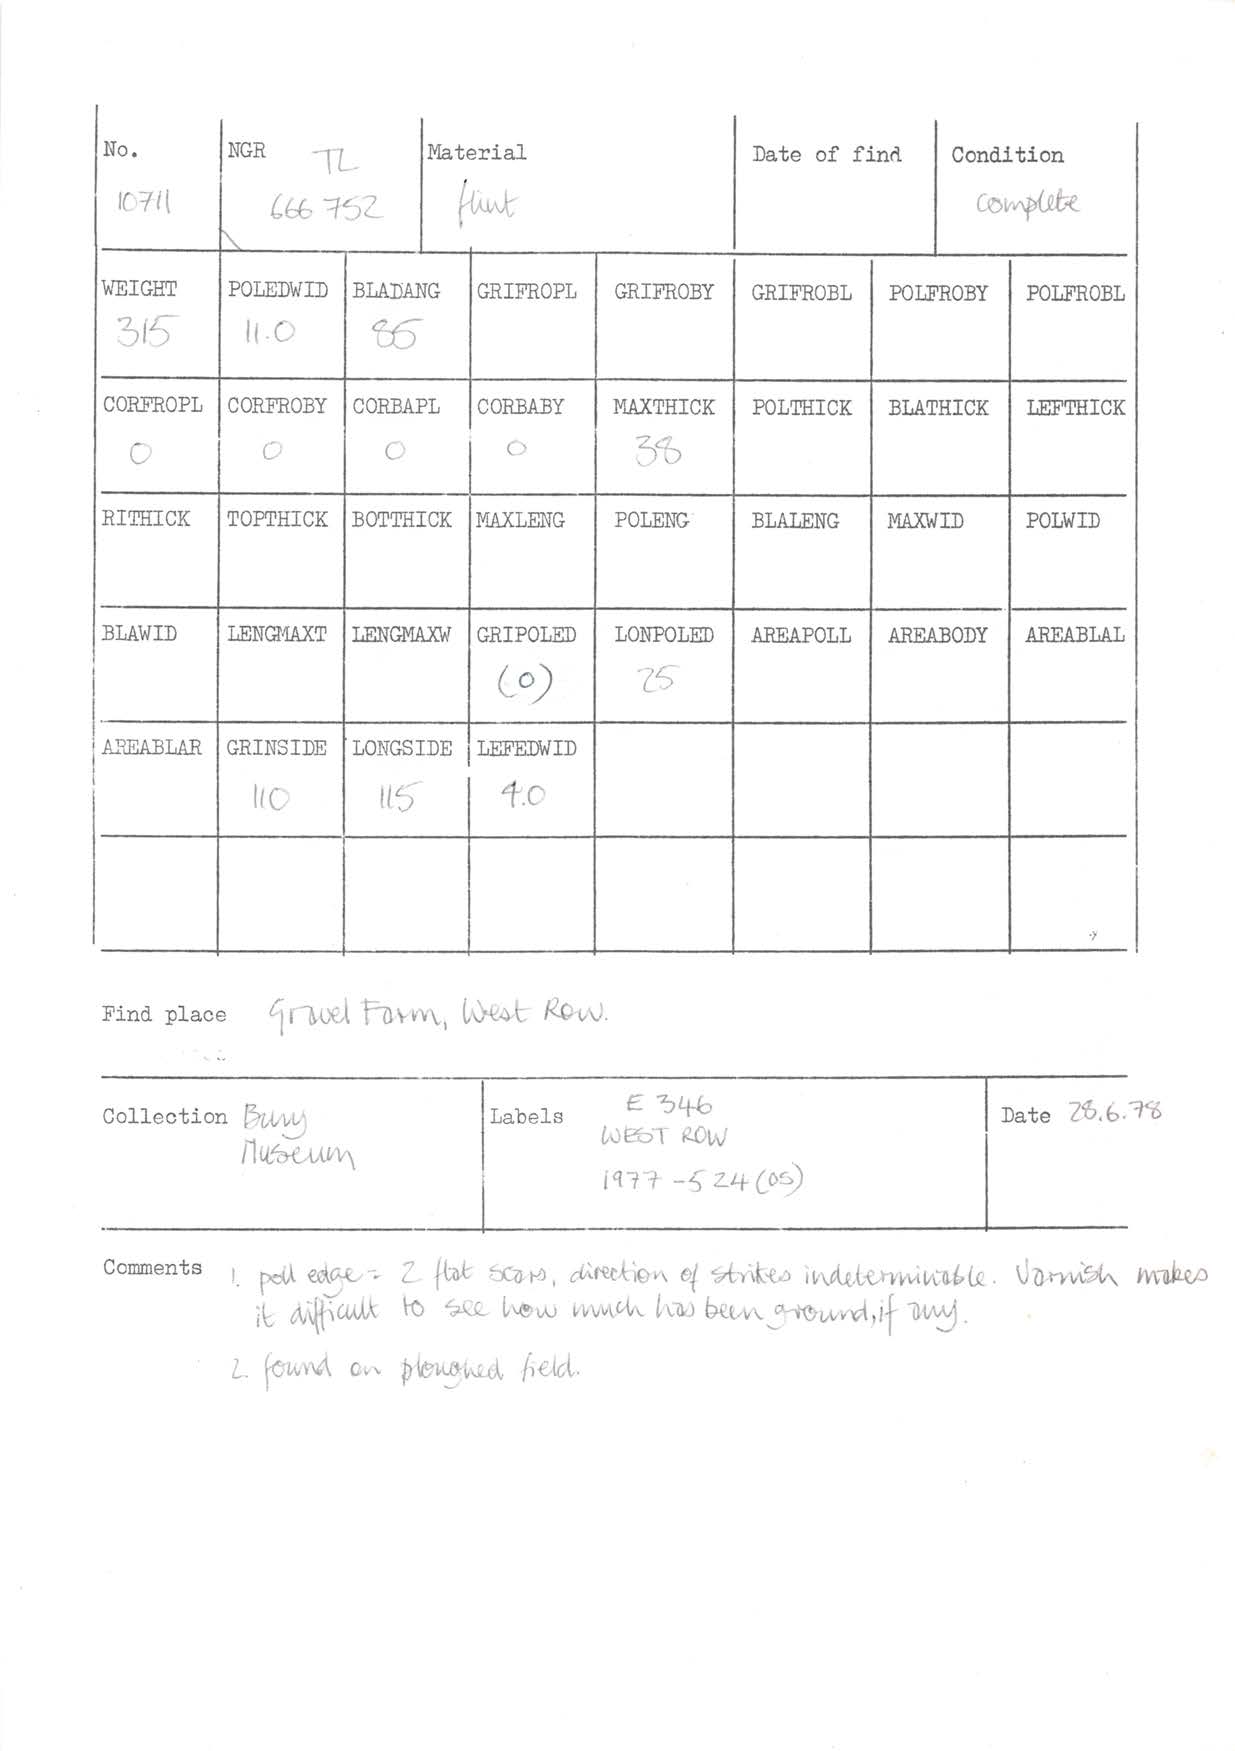 No. NGR TL Material Date of find Condition
10711 666 752 flint complete
WEIGHT POLEDWID BLADANG GRIFROPL GRIFROBY GRIFROBL POLFROBY POLFROBL
315 11.0 85
CORFROPL CORFROBY CORBAPL CORBABY MAXTHICK POLTHICK BLATHICK LEFTHICK
0 0 0 0 38
RITHICK TOPTHICK BOTTHICK MAXLENG POLENG BLALENG MAXWID POLWID
BLAWID LENGMAXT LENGMAXW GRIPOLED LONPOLED AREAPOLL AREABODY AREABLAL
(0) 25
AREABLAR GRINSIDE LONGSIDE LEFEDWID
110 115 4.0
Find place Gravel Farm, West Row.
Collection Bury Museum
Labels E 346
WEST ROW
1977-524(05)
Date 28.6.78
Comments 1. poll edge = 2 flat scars, direction of strikes indeterminable. Varnish makes
it difficult to see how much has been ground, if any.
2. found on ploughed field.